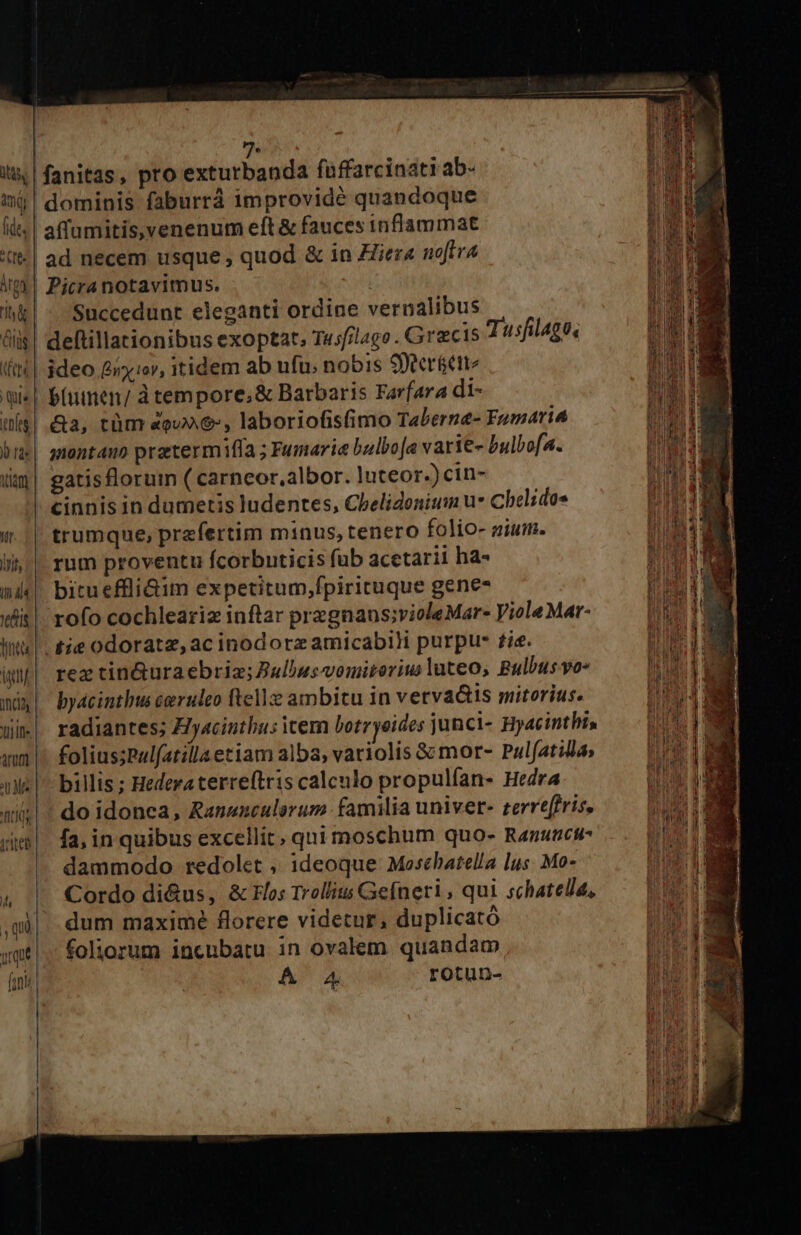 7.
ſanitas, pro exturbanda ſuffarcinati ab-
dominis ſaburrâ improvidè quandoque
aſſumitis, venenum eſt & fauces inflammat
ad necem usque, quod & in Hiera noſtra
Picra notavimus.
Succedunt eleganti ordine vernalibus
deſtillationibus exoptat, Tusſilago. Græcis Tusſilago.
ideo βήχιον, itidem ab uſu, nobis Mertzen-
blumen / à tempore, & Barbaris Farfara di-
cta, tùm laborioſisſimo Tabernæ- Fumaria
montano prætermiſſa; Fumariæ bulboſa varie- bulboſa.
gatis florum (carneor. albor. luteor.) cin-
cinnis in dumetis ludentes, Chelidonium u- Chelido-
trumque, præſertim minus, tenero folio- nium.
rum proventu ſcorbuticis ſub acetarii ha-
bitu efflictim expetitum, ſpirituque gene-
roſo cochleariæ inſtar prægnans; violæ Mar- Viola Mar-
tiæ odoratæ, ac inodoræ amicabili purpu- tiæ.
reæ tincturæ ebriæ; Bulbus vomitorius luteo, Bulbus vo-
hyacinthus cœruleo ſtellæ ambitu in vervactis mitorius.
radiantes; Hyacinthus item botryoides junci- Hyacinthis
folius; Pulſatilla etiam alba, variolis & mor- Pulſatilla,
billis; Hedera terreſtris calculo propulſan- Hedra
do idonea, Ranunculorum familia univer- terreſtris.
ſa, in quibus excellit, qui moschum quo- Ranuncu-
dammodo redolet, ideoque Moschatella lus Mo-
Cordo dictus, & Flos Trollius Geſneri, qui schatella,
dum maximè florere videtur, duplicatô
foliorum incubatu in ovalem quandam
A 4 rotun-